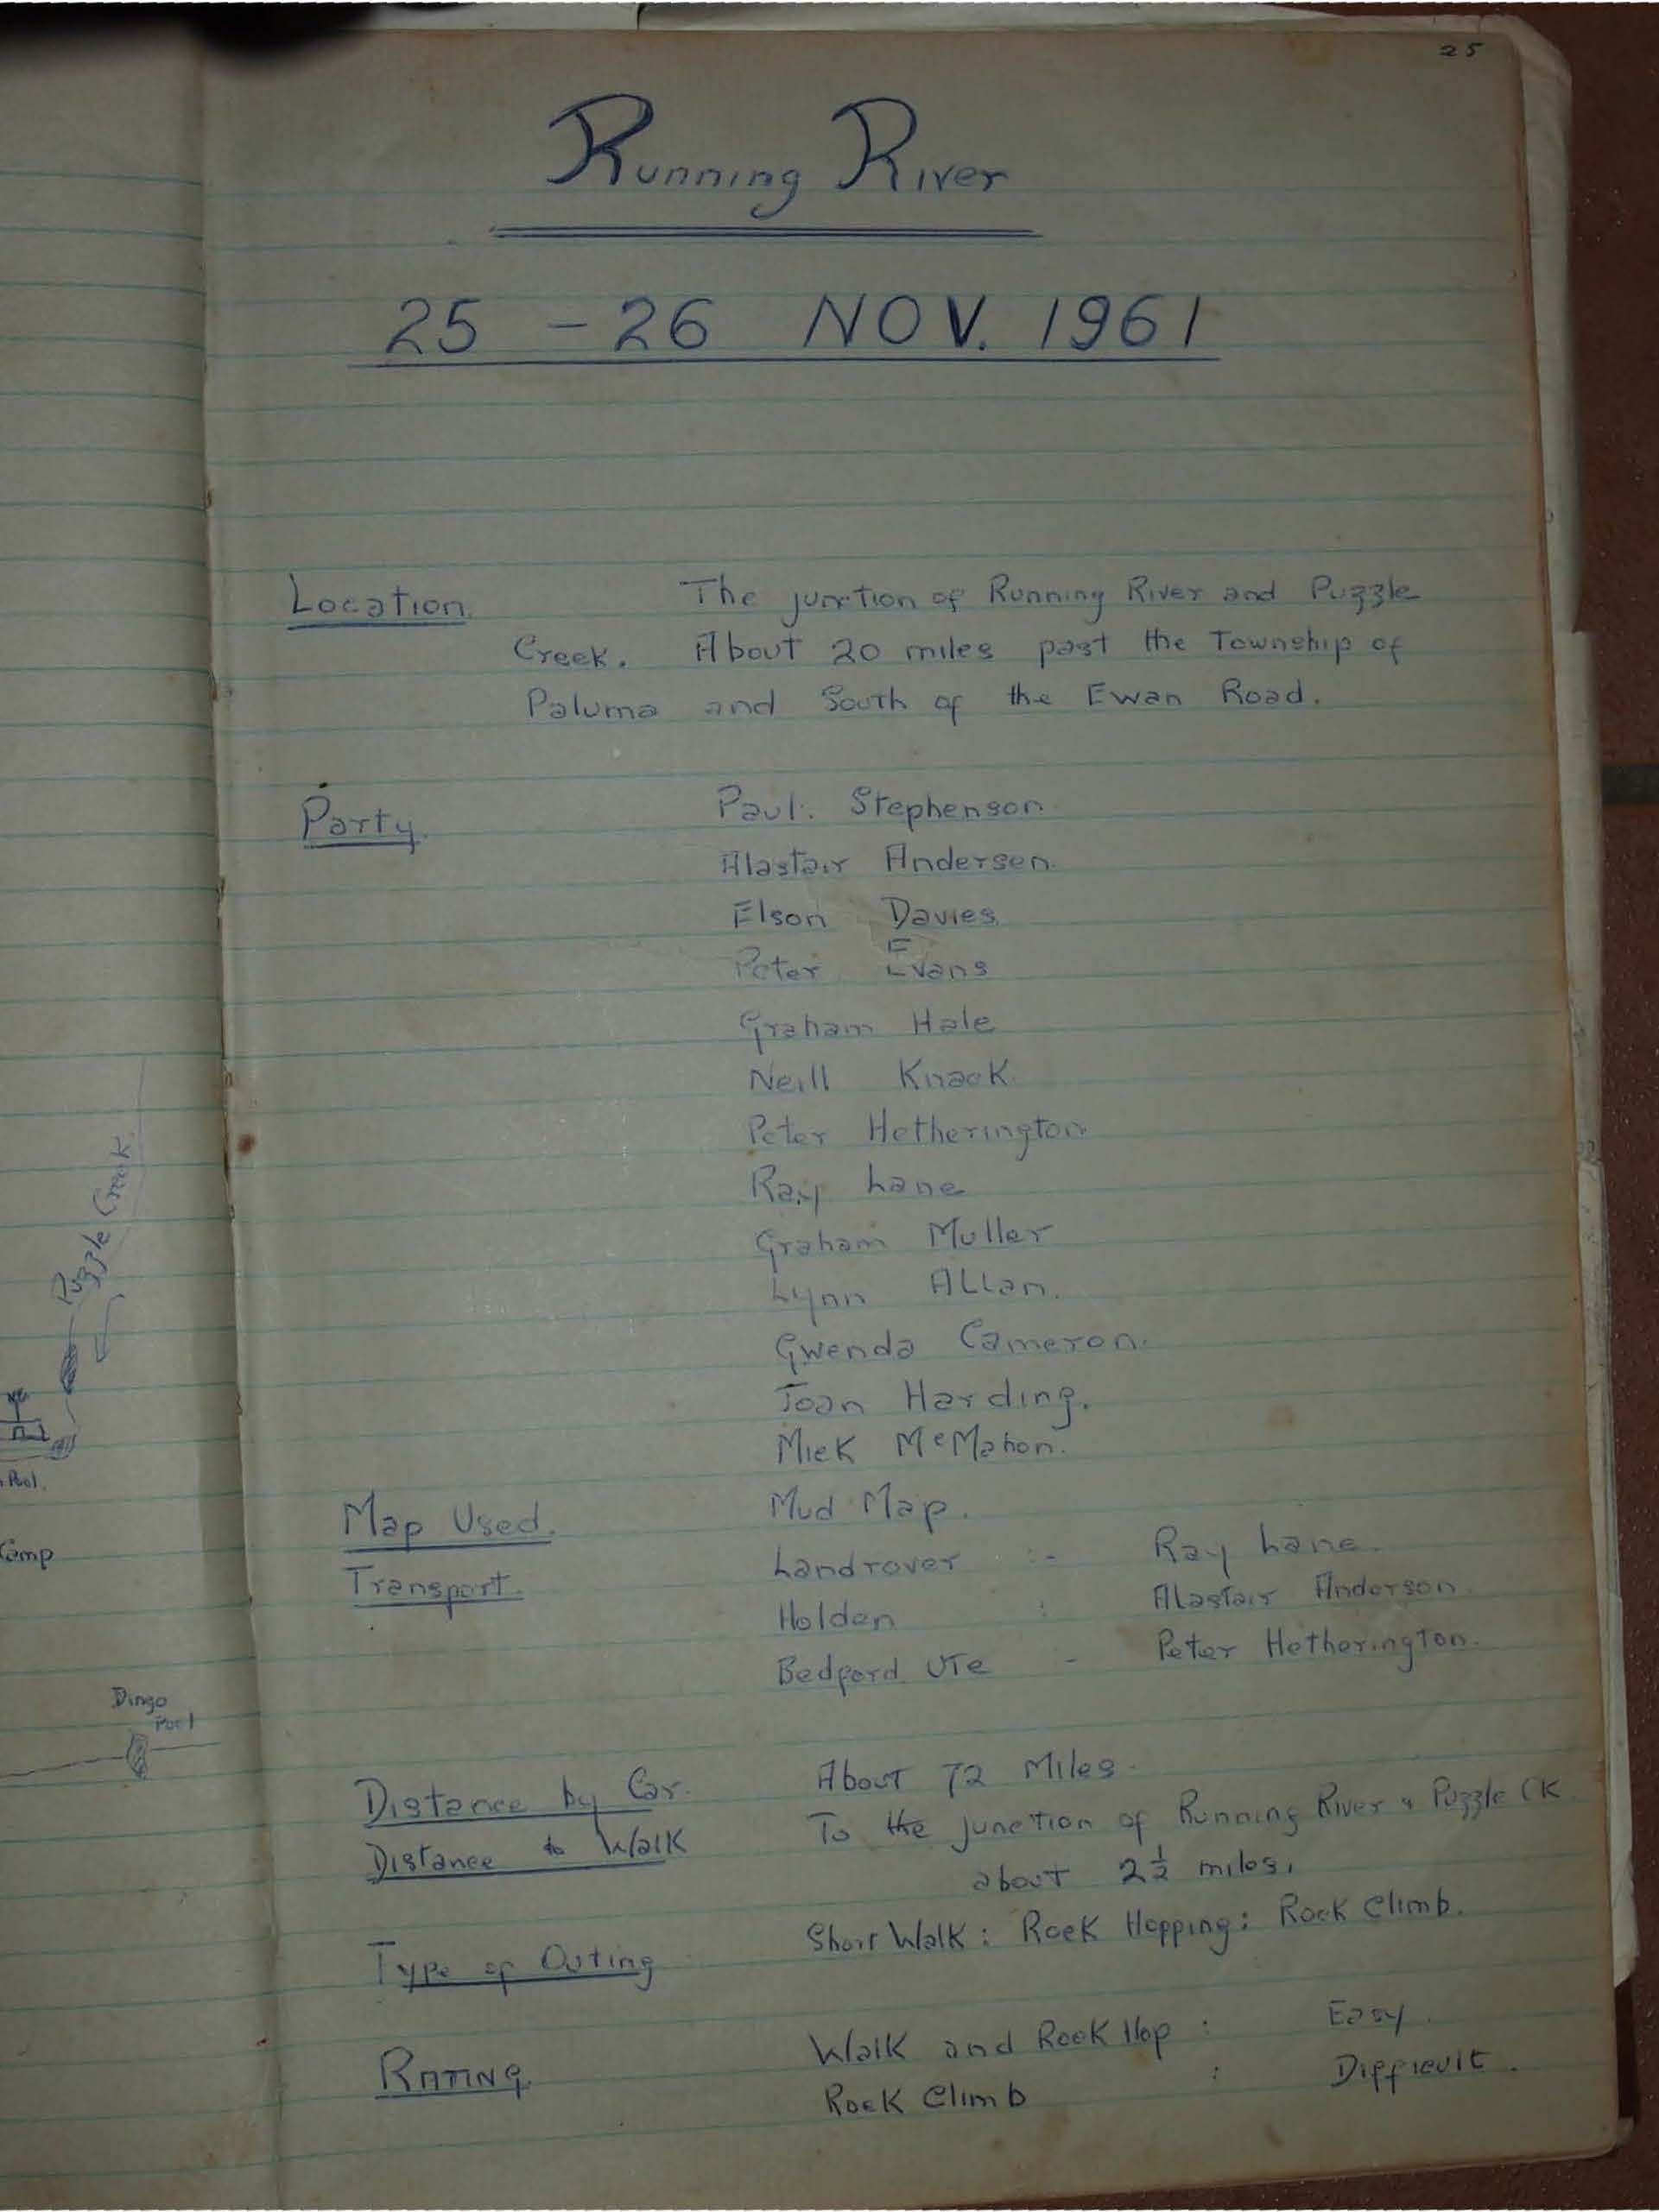 25
Running River
25 - 26 NOV. 1961
Location. The junction of Running River and Puzzle
Creek. About 20 miles past the Township of
Paluma and South of the Ewan Road.
Party. Paul. Stephenson
Alastair Andersen.
Elson Davies.
Peter Evans
Graham Hale
Neill Knack.
Peter Hetherington
Ray Lane
Graham Muller
Lynn Allan.
Gwenda Cameron.
Joan Harding.
Mick McMahon.
Map Used. Mud Map.
Transport. Landrover :- Ray Lane.
Holden : Alastair Anderson.
Bedford Ute - Peter Hetherington.
Distance by Car. About 72 Miles.
Distance to Walk To the junction of Running River & Puzzle CK.
about 2½ miles.
Type of Outing Short Walk: Rock Hopping: Rock Climb.
RATING. Walk and Rock Hop : Easy.
Rock Climb : Difficult.
Puzzle Creek
Pool.
Camp
Dingo
Pool